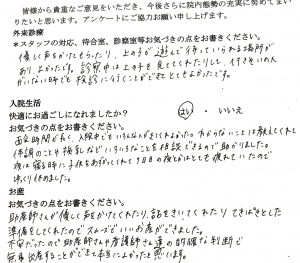 皆様から貴重なご意見をいただき、今後さらに院内態勢の充実に努めてまい
りたいと思います。アンケートにご協力お願い申し上げます。
外来診療
*スタッフの対応、待合室、診察室等お気づきの点をお書きください。
優しく声をかけてもらったり、上の子が遊んで待っていられる場所が
あり、よかったです。診察中は上の子を見てくれたりして、付きそいの人
がいない時でも検診に行くことができてとてもよかったです。
入院生活
快適にお過ごしになれましたか? はい ・ いいえ
お気づきの点をお書きください。
面会時間が長く、入院中でもいろんな人がきてくれたのわからないことは教えてくれ
体調のことや授乳などいろいろなことを相談できましたので助かりました。
夜は寝る時に子供をあずかってくれて1日の夜とかはとても疲れていたので
ゆっくり休めました。
お産
お気づきの点をお書きください。
助産師さんが優しく声をかけてくれたり、話をきいてくれたり てきぱきとした
準備をしてくれたのでスムーズでいいお産ができました。
不安だったので助産師さんや看護師さん達の的確な判断で
無事出産することができて本当によかったと思います。